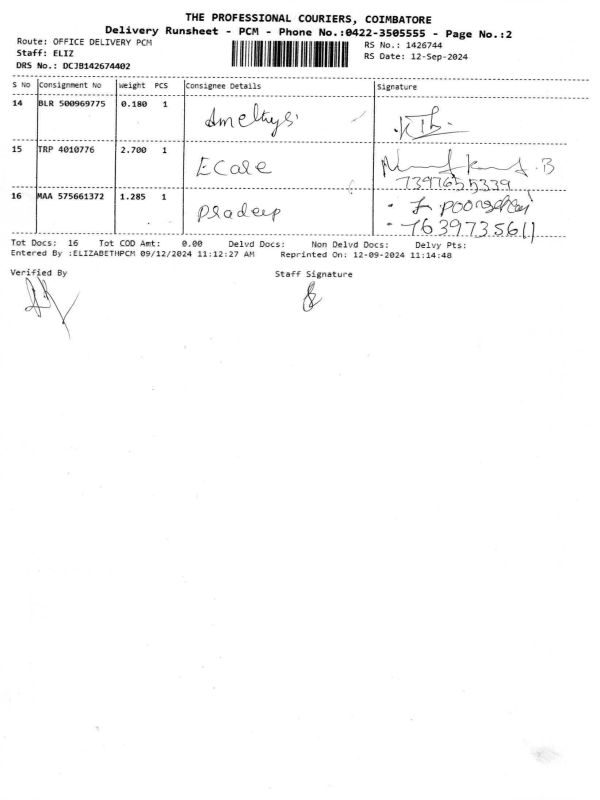 THE PROFESSIONAL COURIERS, COIMBATORE
Delivery Runsheet - PCM - Phone No.:0422-3505555 - Page No.:2
Route: OFFICE DELIVERY PCM
Staff: ELIZ
DRS No.: DCJB142674402
RS No.: 1426744
RS Date: 12-Sep-2024
S No Consignment No Weight PCS Consignee Details Signature
14 BLR 500969775 0.180 1
15 TRP 4010776 2.700 1 ECare
7397655339
16 MAA 575661372 1.285 1 Pradeep
7639735611
Tot Docs: 16 Tot COD Amt: 0.00 Delvd Docs: Non Delvd Docs: Delvy Pts:
Entered By :ELIZABETHPCM 09/12/2024 11:12:27 AM Reprinted On: 12-09-2024 11:14:48
Verified By Staff Signature